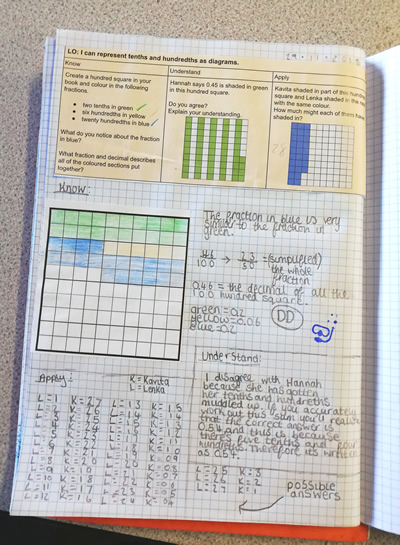 LO: I can represent tenths and hundredths as diagrams.
Know
Create a hundred square in your
book and colour in the following
fractions.
two tenths in green
six hundredths in yellow
twenty hundredths in blue
What do you notice about the fraction
in blue?
What fraction and decimal describes
all of the coloured sections put
together?
Understand
Hannah says 0.45 is shaded in green
in this hundred square.
Do you agree?
Explain your understanding.
Apply
Kavita shaded in part of this hundred
square and Lenka shaded in the
with the same colour.
How much might each of them have
shaded in?
28
Know:
The fraction in blue is very
similar to the fraction in
green.
46/100 → 23/50 = (simplified)
the whole
fraction
0.46 = the decimal of all the
100 hundred square.
green = 0.2
Yellow = 0.06
Blue = 0.2
DD
Understand:
I disagree with Hannah
because she has gotten
her tenths and hundreths
muddled up. If you accurately
work out this sum you'll realise
that the correct answer is
0.54 and this is because
theres five tenths and four
hundreths. Therefore its written
as 0.54.
Apply:
K = Kavita
L = Lenka
L = 1 K = 27 L = 13 K = 15
L = 2 K = 26 L = 14 K = 14
L = 3 K = 25 L = 15 K = 13
L = 10 K = 18
L = 11 K = 17
L = 12 K = 16
L = 25 K = 3
L = 26 K = 2
L = 27 K = 1
possible
answers